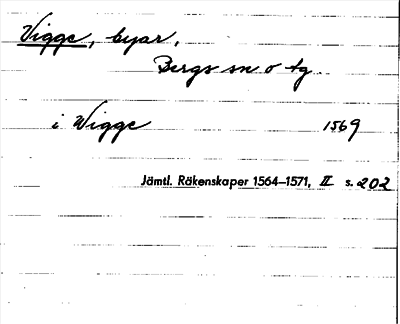 Vigge, byar,
Bergs sn o tg
i Wigge 1569
Jämtl. Räkenskaper 1564–1571, II s. 202